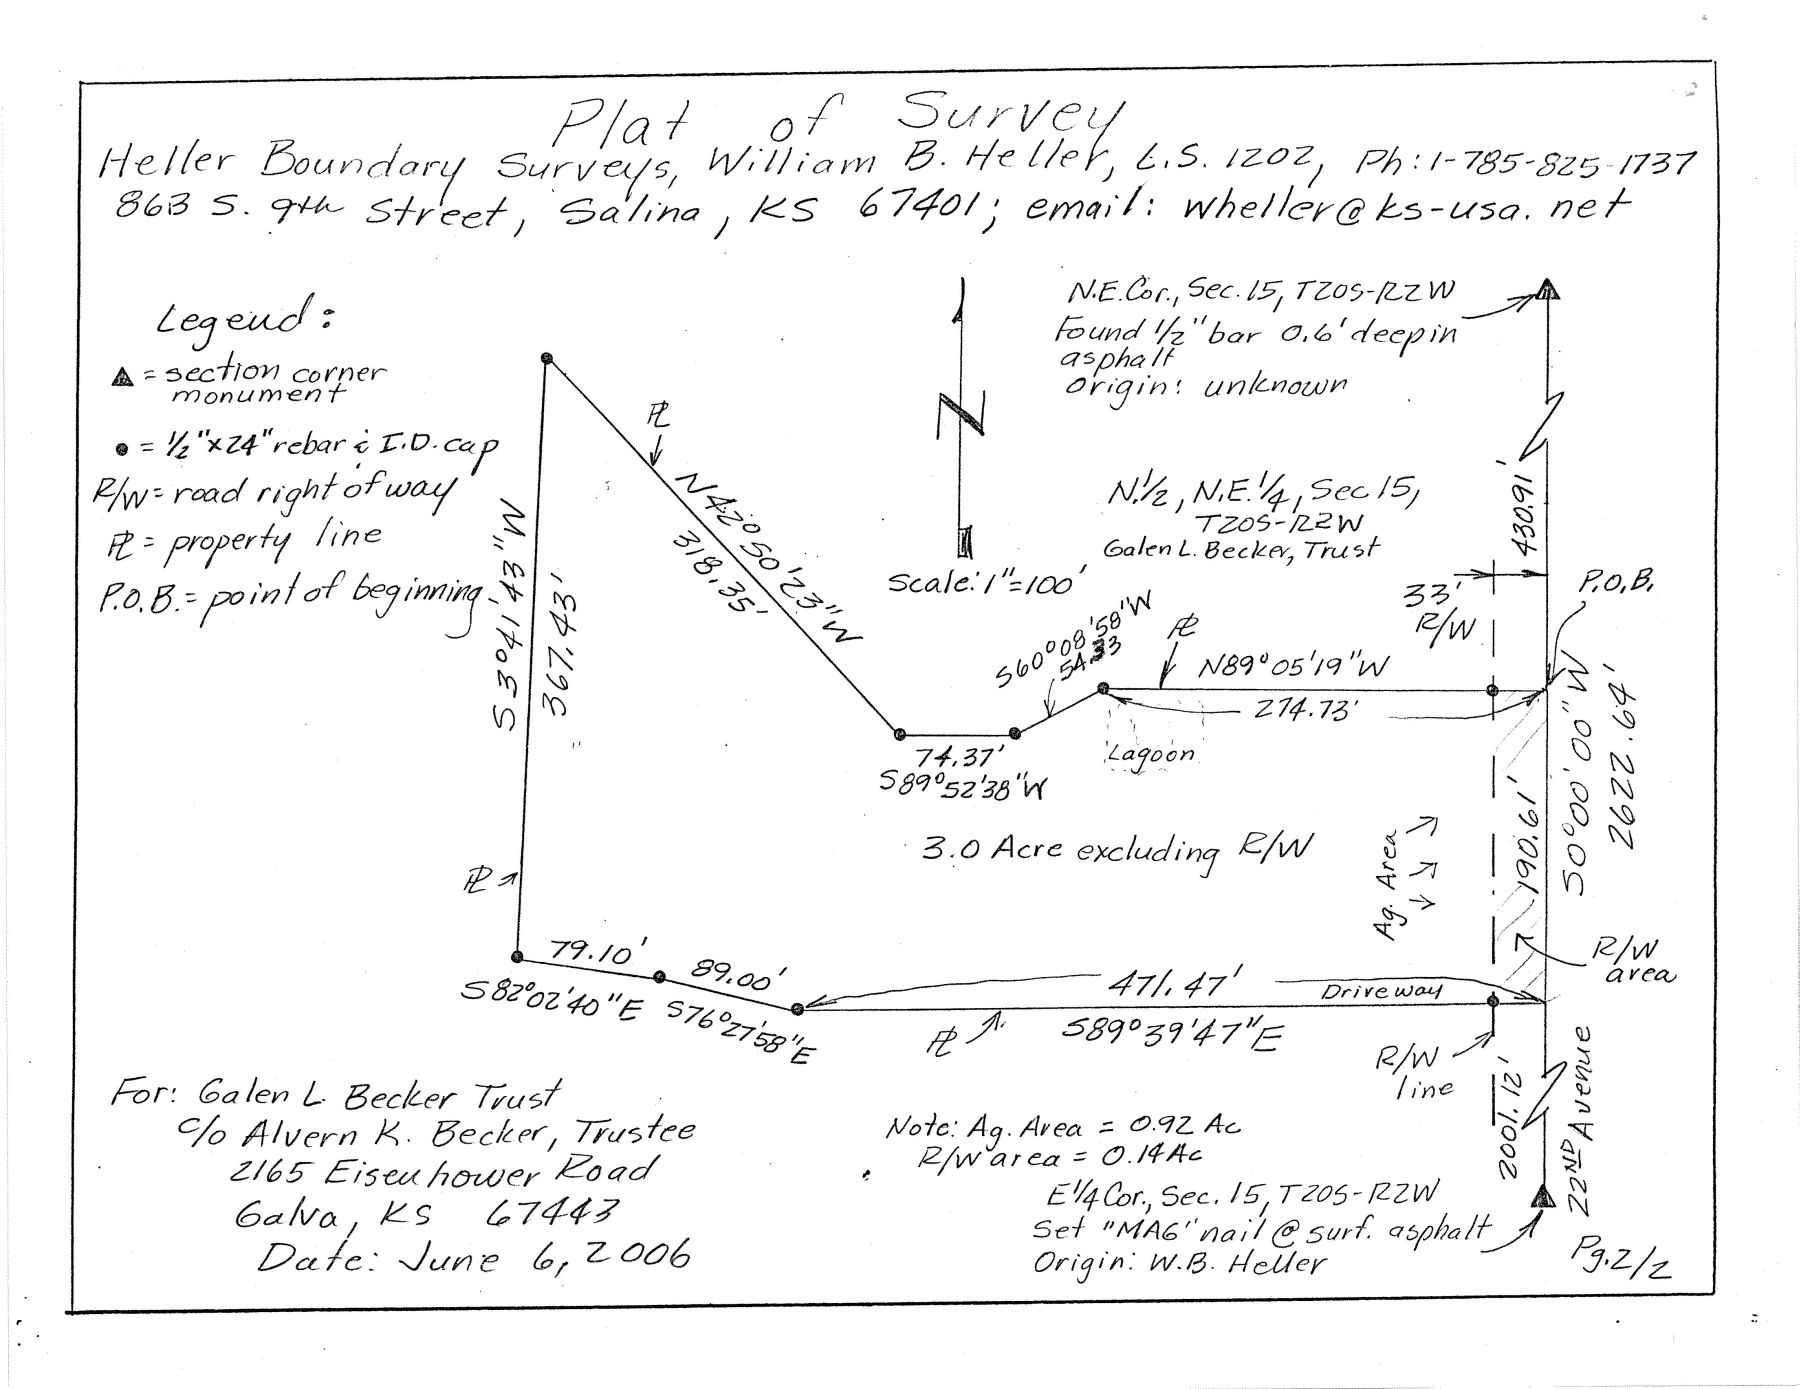 Plat of Survey
Heller Boundary Surveys, William B. Heller, L.S. 1202, Ph: 1-785-825-1737
863 S. 9th Street, Salina, KS 67401; email: wheller@ks-usa.net
Legend:
▲ = section corner
monument
● = 1/2"x24" rebar & I.D. cap
R/W = road right of way
PL = property line
P.O.B. = point of beginning
N.E. Cor., Sec. 15, T20S-R2W
Found 1/2" bar 0.6' deep in
asphalt
Origin: unknown
N
Scale: 1"=100'
N.1/2, N.E.1/4, Sec 15,
T20S-R2W
Galen L. Becker, Trust
430.91'
33'
R/W
P.O.B.
PL
N42°50'23"W
318.35'
S3°41'43"W
367.43'
S60°08'58"W
54.33
PL
N89°05'19"W
274.73'
74.37'
S89°52'38"W
Lagoon
S0°00'00"W
2622.64'
190.61'
3.0 Acre excluding R/W
Ag. Area
PL
R/W
area
79.10'
S82°02'40"E
89.00'
S76°27'58"E
471.47'
Driveway
PL
S89°39'47"E
R/W
line
2001.12'
22ND Avenue
For: Galen L. Becker Trust
c/o Alvern K. Becker, Trustee
2165 Eisenhower Road
Galva, KS 67443
Date: June 6, 2006
Note: Ag. Area = 0.92 Ac
R/W area = 0.14 Ac
E1/4 Cor., Sec. 15, T20S-R2W
Set "MAG" nail @ surf. asphalt
Origin: W.B. Heller
Pg. 2/2